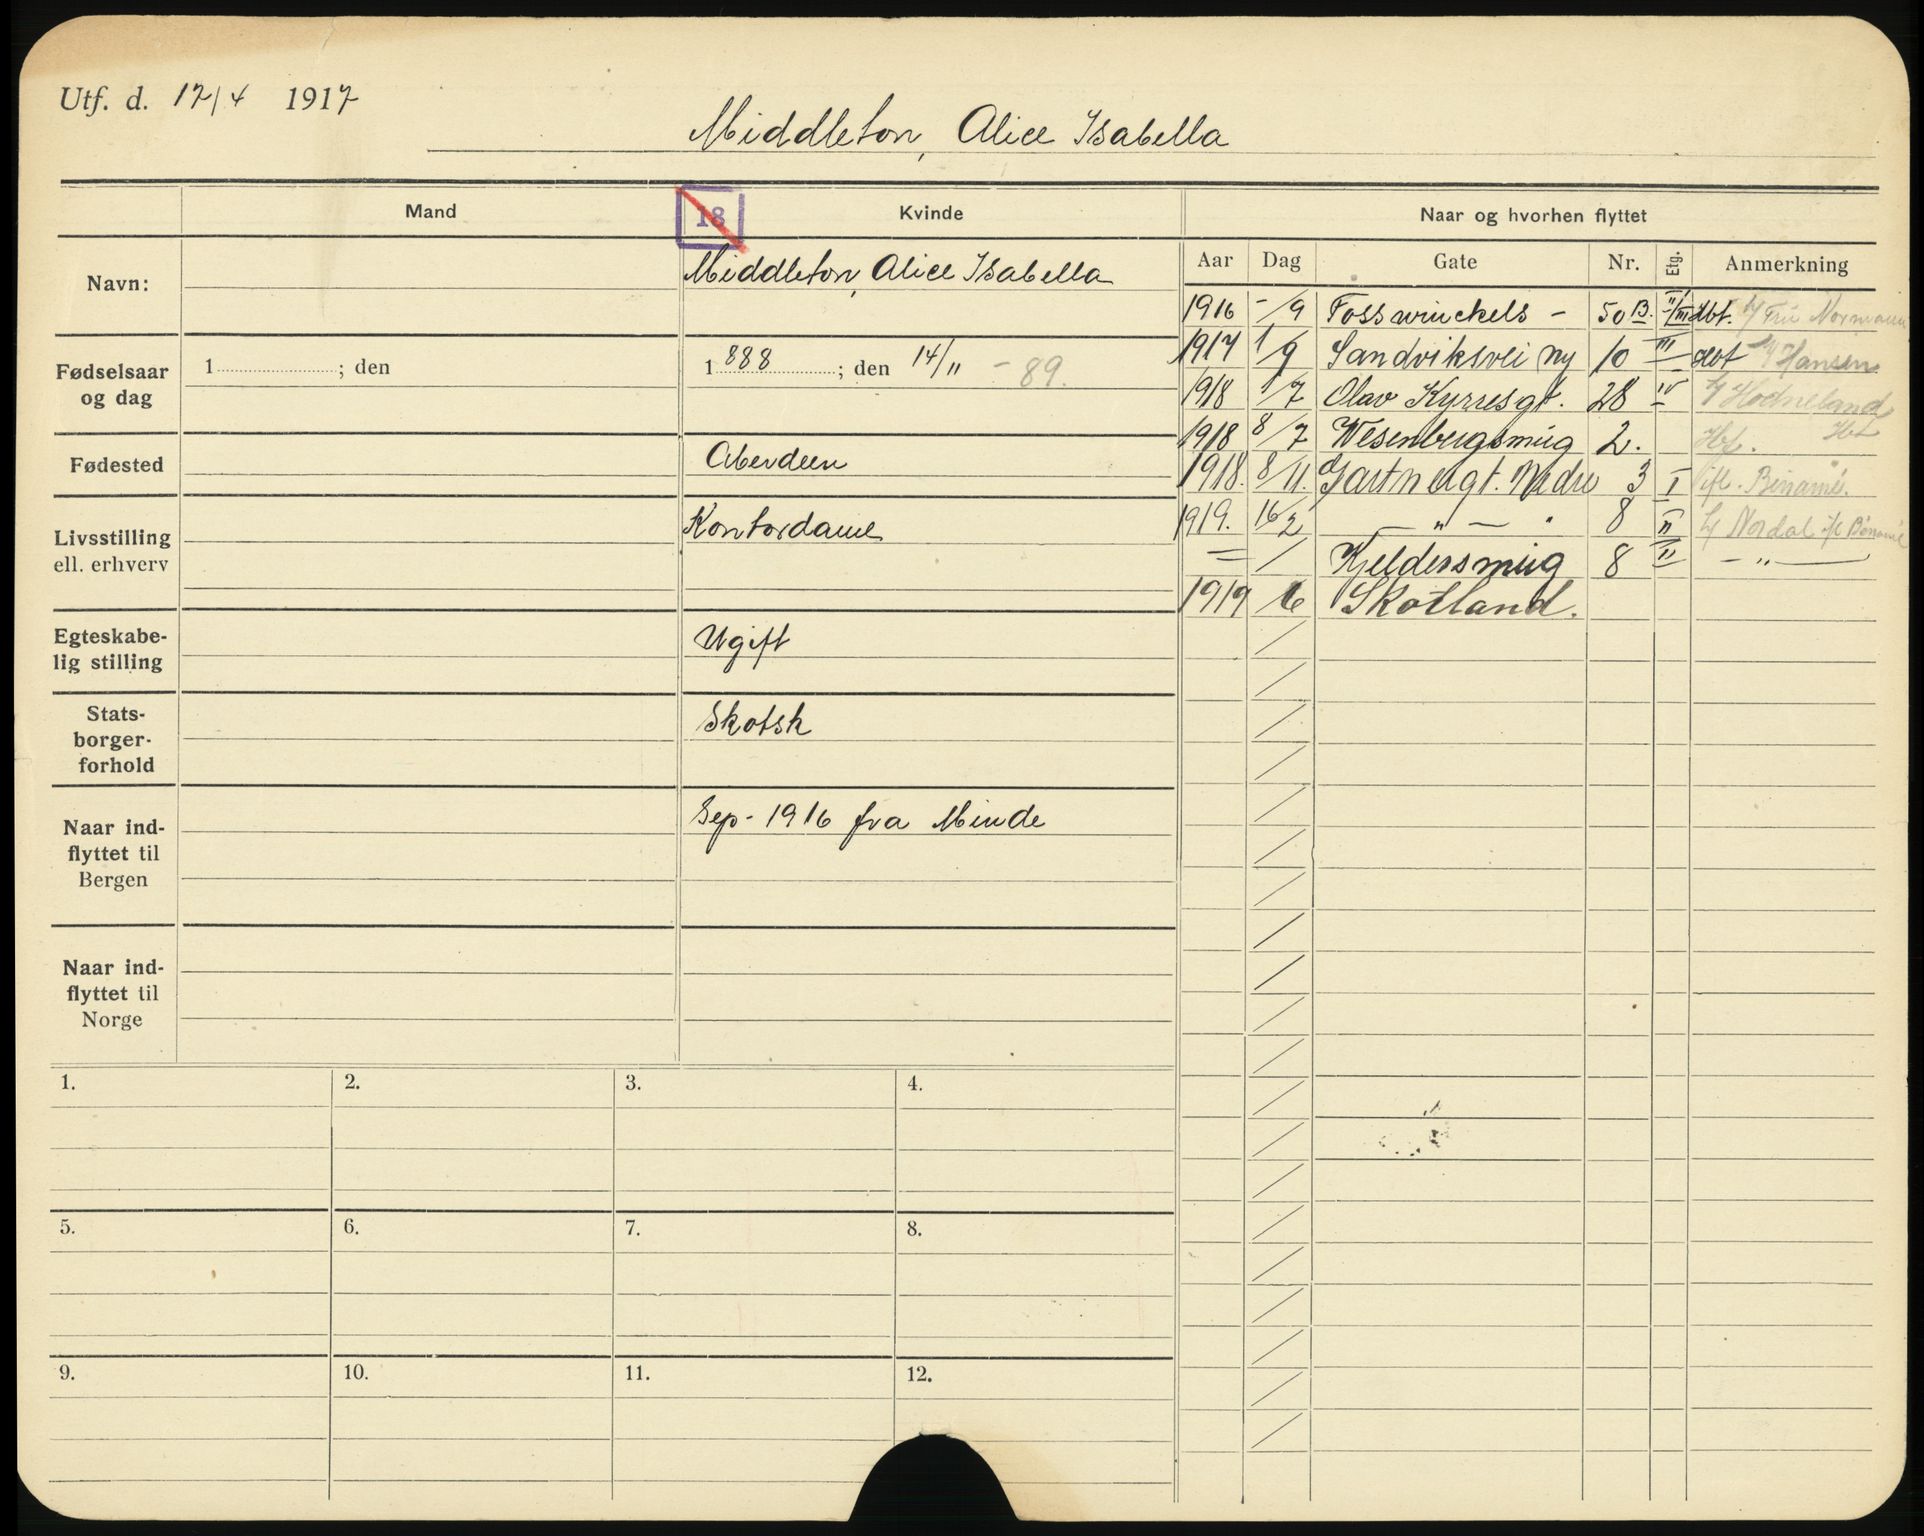 Utf. d. 17/4 1917
Middleton, Alice Isabella
Mand
18
Kvinde
Naar og hvorhen flyttet
Aar Dag Gate Nr. Etg. Anmerkning
Navn:
Middleton, Alice Isabella
Fødselsaar
og dag
1 ; den
1 888 ; den 14/11 - 89.
Fødested
Aberdeen
Livsstilling
ell. erhverv
Kontordame
Egteskabe-
lig stilling
Ugift
Stats-
borger-
forhold
Skotsk
Naar ind-
flyttet til
Bergen
Sep - 1916 fra Minde
Naar ind-
flyttet til
Norge
1916 -/9 Fosswinckels - 50 B. II/III hbt. Fru Normann
1917 1/9 Sandviksvei ny 10 III hbt Hansen
1918 1/7 Olav Kyrresgt. 28 IV Hodneland
1918 8/7 Wesenbergsmug 2. Hbt
1918. 8/11. Gartnergt. Nedre 3 I Biname.
1919. 16/2 — " — " 8 II Nordal
= / Kjeldersmug 8 II - " -
1919 /6 Skotland.
1. 2. 3. 4.
5. 6. 7. 8.
9. 10. 11. 12.